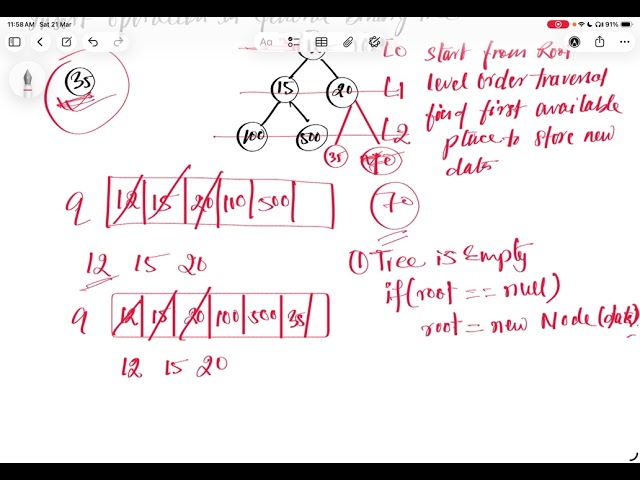 11:58 AM Sat 21 Mar
91%
Insert operation in general Binary
L0 start from Root
35
15 20 L1 level order traversal
find first available
100 500 L2 place to store new
35 70 data
q 12 15 20 110 500
70
12 15 20
(1) Tree is Empty
if(root == null)
q 12 15 20 100 500 35
root = new Node(data);
12 15 20